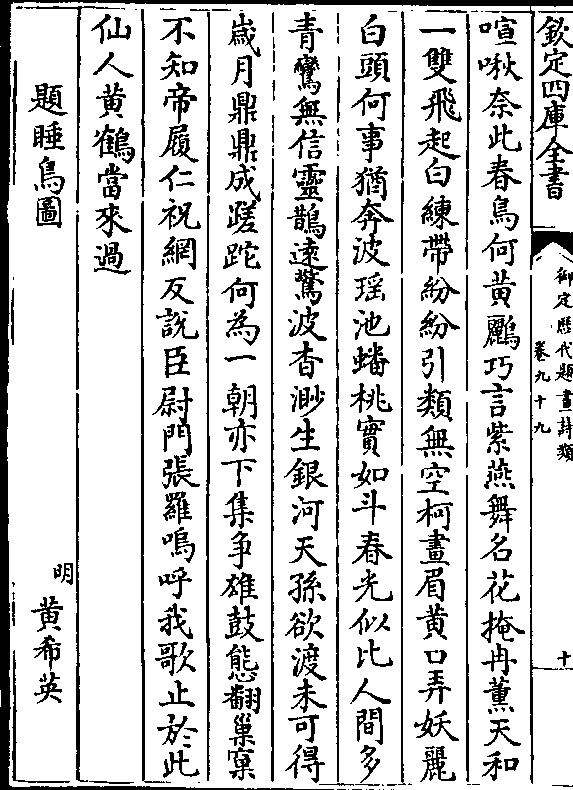 欽定四庫全書
御定歴代題畫詩類
卷九十九
十
喧啾奈此春鳥何黄鸝巧言紫燕舞名花掩冉薫天和
一雙飛起白練帶紛紛引類無空柯畫眉黄口弄妖麗
白頭何事猶奔波瑶池蟠桃實如斗春光似比人間多
青鸞無信靈鵲逺驚波杳渺生銀河天孫欲渡未可得
嵗月鼎鼎成蹉跎何為一朝亦下集争雄鼓態翻巢窠
不知帝履仁祝網反説臣尉門張羅嗚呼我歌止於此
仙人黄鶴當來過
題睡鳥圖
明 黄希英